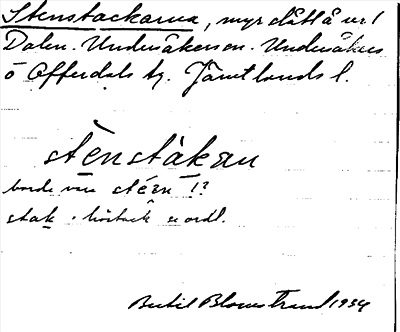 Stenstackarna, myrslått å ur 1
Dalen. Undersåkers sn. Undersåkers
o Offerdals tg. Jämtlands l.
stènstàkan
borde vara stéen 1?
stak. höstack u ordl.
Bertil Blomstrand 1934